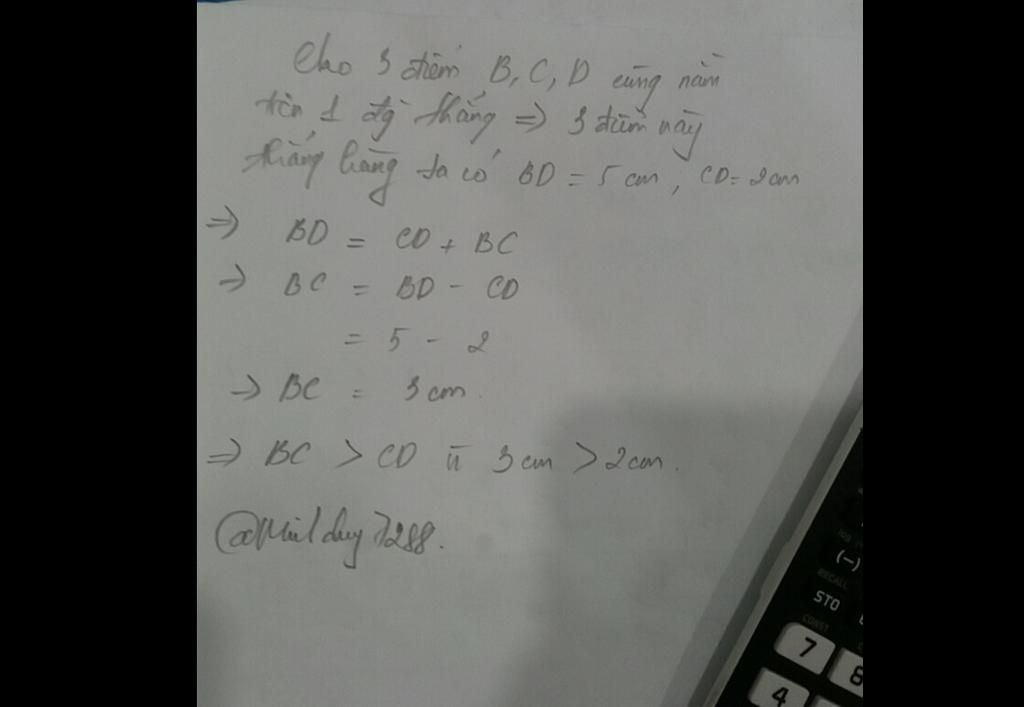 Cho 3 điểm B, C, D cùng nằm
trên 1 đg thẳng => 3 điểm này
thẳng hàng ta có BD = 5 cm, CD = 2 cm
=> BD = CD + BC
=> BC = BD - CD
= 5 - 2
=> BC = 3 cm.
=> BC > CD vì 3 cm > 2 cm.
(-)
RECALL
STO
CONST
7 8
4